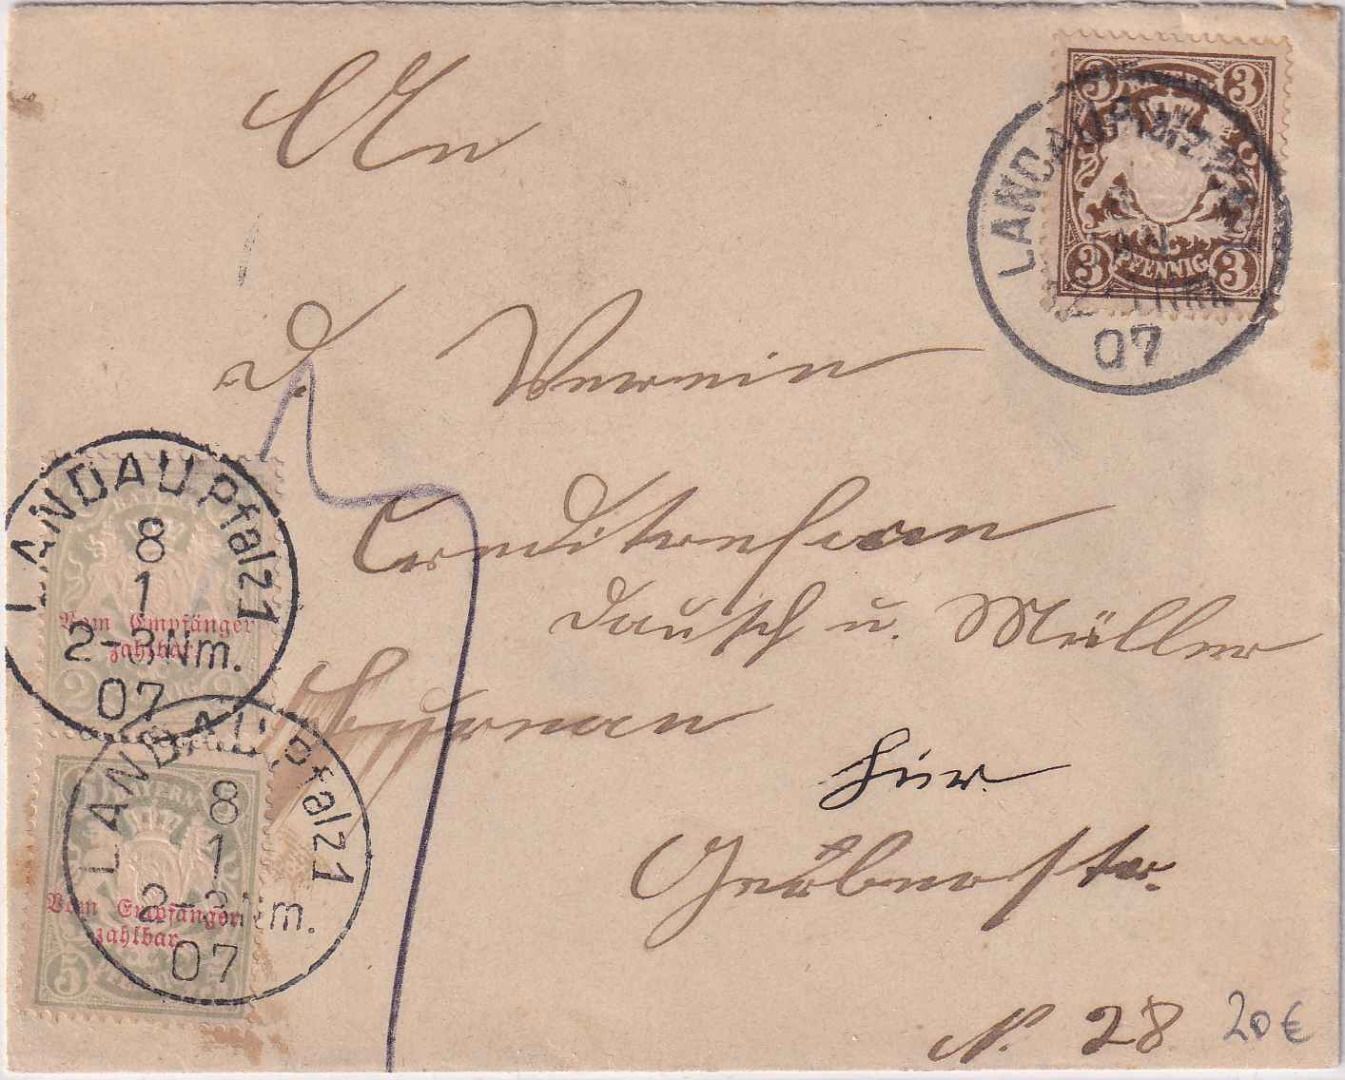 An
3 3
BAYERN
3 PFENNIG 3
LANDAU Pfalz
07
d. Verein
Creditreform
Dausch u. Müller
hier
Gerberstr.
N. 28
20 €
7
LANDAU Pfalz 1
8
1
2-3 Nm.
07
Vom Empfänger
zahlbar
2
LANDAU Pfalz 1
8
1
2-3 Nm.
07
BAYERN
Vom Empfänger
zahlbar
5